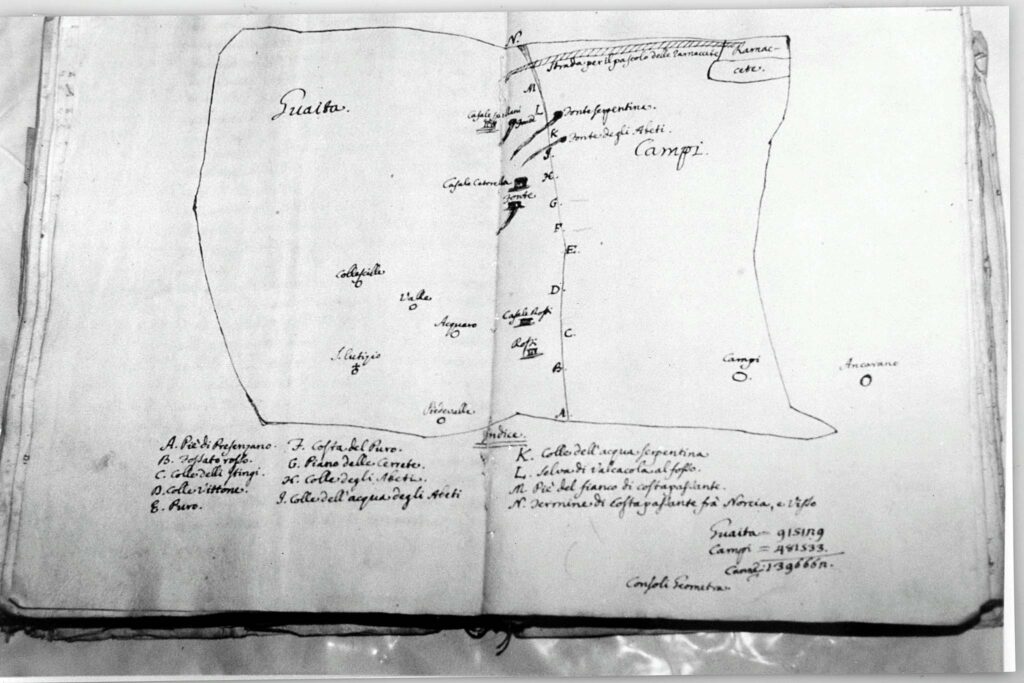 N.
Strada per il pascolo delle Ramaccete
Ramac-
cete.
Guaita.
M
L
Casale
Fonte
Fonte Serpentina.
K
Fonte degli Abeti.
J.
Campi.
H.
Casale
Fonte
G.
F.
E.
Collescille
D
Valle
Casale Rossi
Acquaro
C.
Rossi
S. Eutizio
B.
Campi
Ancarano
Piedevalle
A.
Indice.
A. Piè di Presenzano.
B. Fossato rosso.
C. Colle delli stingi.
D. Colle Vittone.
E. Puro.
F. Costa del Puro.
G. Piano delle Cerrete.
H. Colle degli Abeti.
J. Colle dell'acqua degli Abeti
K. Colle dell'acqua serpentina
L. Selva di Valcacola al fosso.
M. Piè del fianco di costapassante.
N. Termine di Costapassante frà Norcia, e Visso
Guaita =
Campi = 481533.
Consoli Geometra.